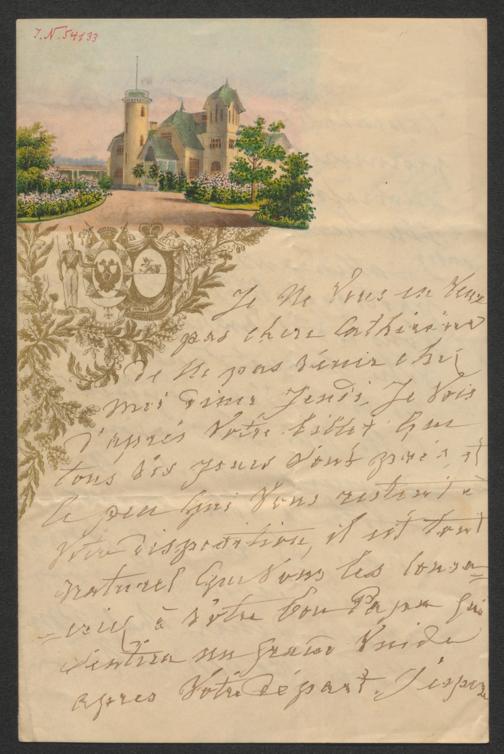 J.N. 54133
Je Ne Vous en Veux
pas chere Catherine
de Ne pas Venir chez
moi diner Jeudi. Je Vois
d'après Votre billet que
tous Vos jours sont pris et
le peu qui Vous restent à
Votre disposition, il est tout
naturel que Vous les consa=
=criez à Votre bon Papa qui
sentira un grand Vuide
après Votre Départ. J'espère